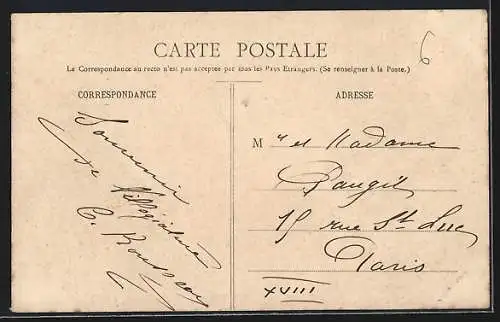 CARTE POSTALE
6
La Correspondance au recto n'est pas acceptée par tous les Pays Etrangers. (Se renseigner à la Poste.)
CORRESPONDANCE
Souvenir
de Villégiature
C. Rousseau
ADRESSE
M r et Madame
15 rue St Luc
Paris
XVIII